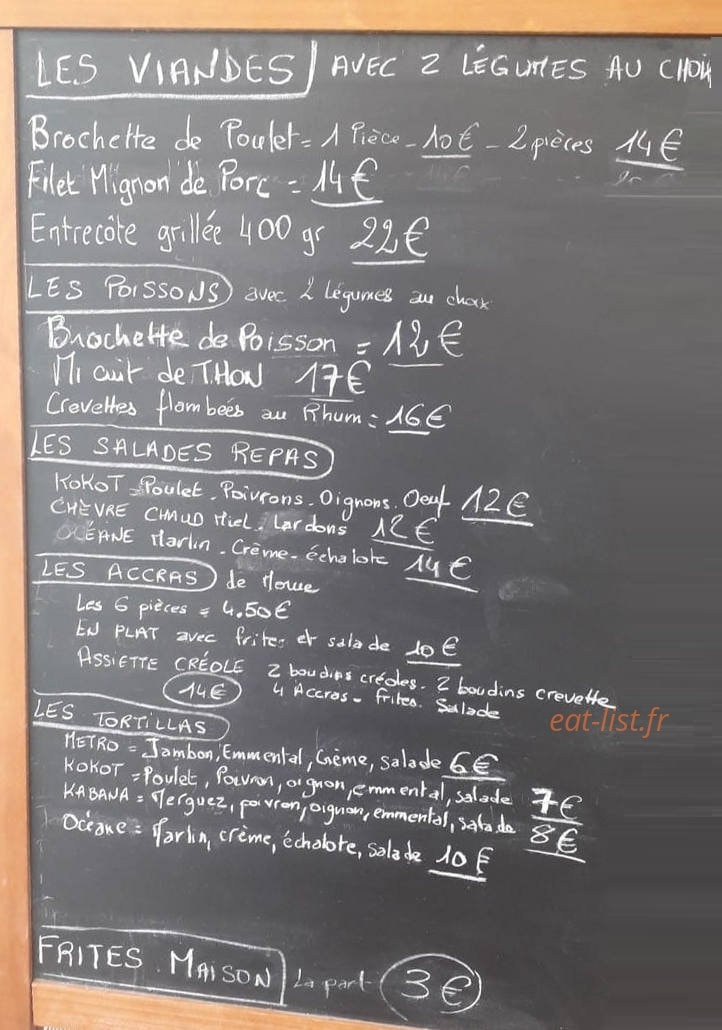 LES VIANDES AVEC 2 LÉGUMES AU CHOIX
Brochette de Poulet = 1 Pièce - 10€ - 2 pièces 14€
Filet Mignon de Porc = 14€
Entrecôte grillée 400 gr 22€
LES POISSONS avec 2 Légumes au choix
Brochette de Poisson = 12€
Mi cuit de THON 17€
Crevettes flambées au Rhum = 16€
LES SALADES REPAS
KOKOT = Poulet. Poivrons. Oignons. Oeuf 12€
CHÈVRE CHAUD Miel. Lardons 12€
OCÉANE Marlin. Crème. échalote 14€
LES ACCRAS de Morue
Les 6 pièces = 4.50€
EN PLAT avec frites et salade 10€
ASSIETTE CRÉOLE 2 boudins créoles. 2 boudins crevette
14€ 4 Accras. frites. Salade
eat-list.fr
LES TORTILLAS
METRO = Jambon, Emmental, Crème, salade 6€
KOKOT = Poulet, Poivron, oignon, emmental, salade 7€
KABANA = Merguez, poivron, oignon, emmental, salade 8€
Océane = Marlin, crème, échalote, salade 10€
FRITES MAISON La part 3€